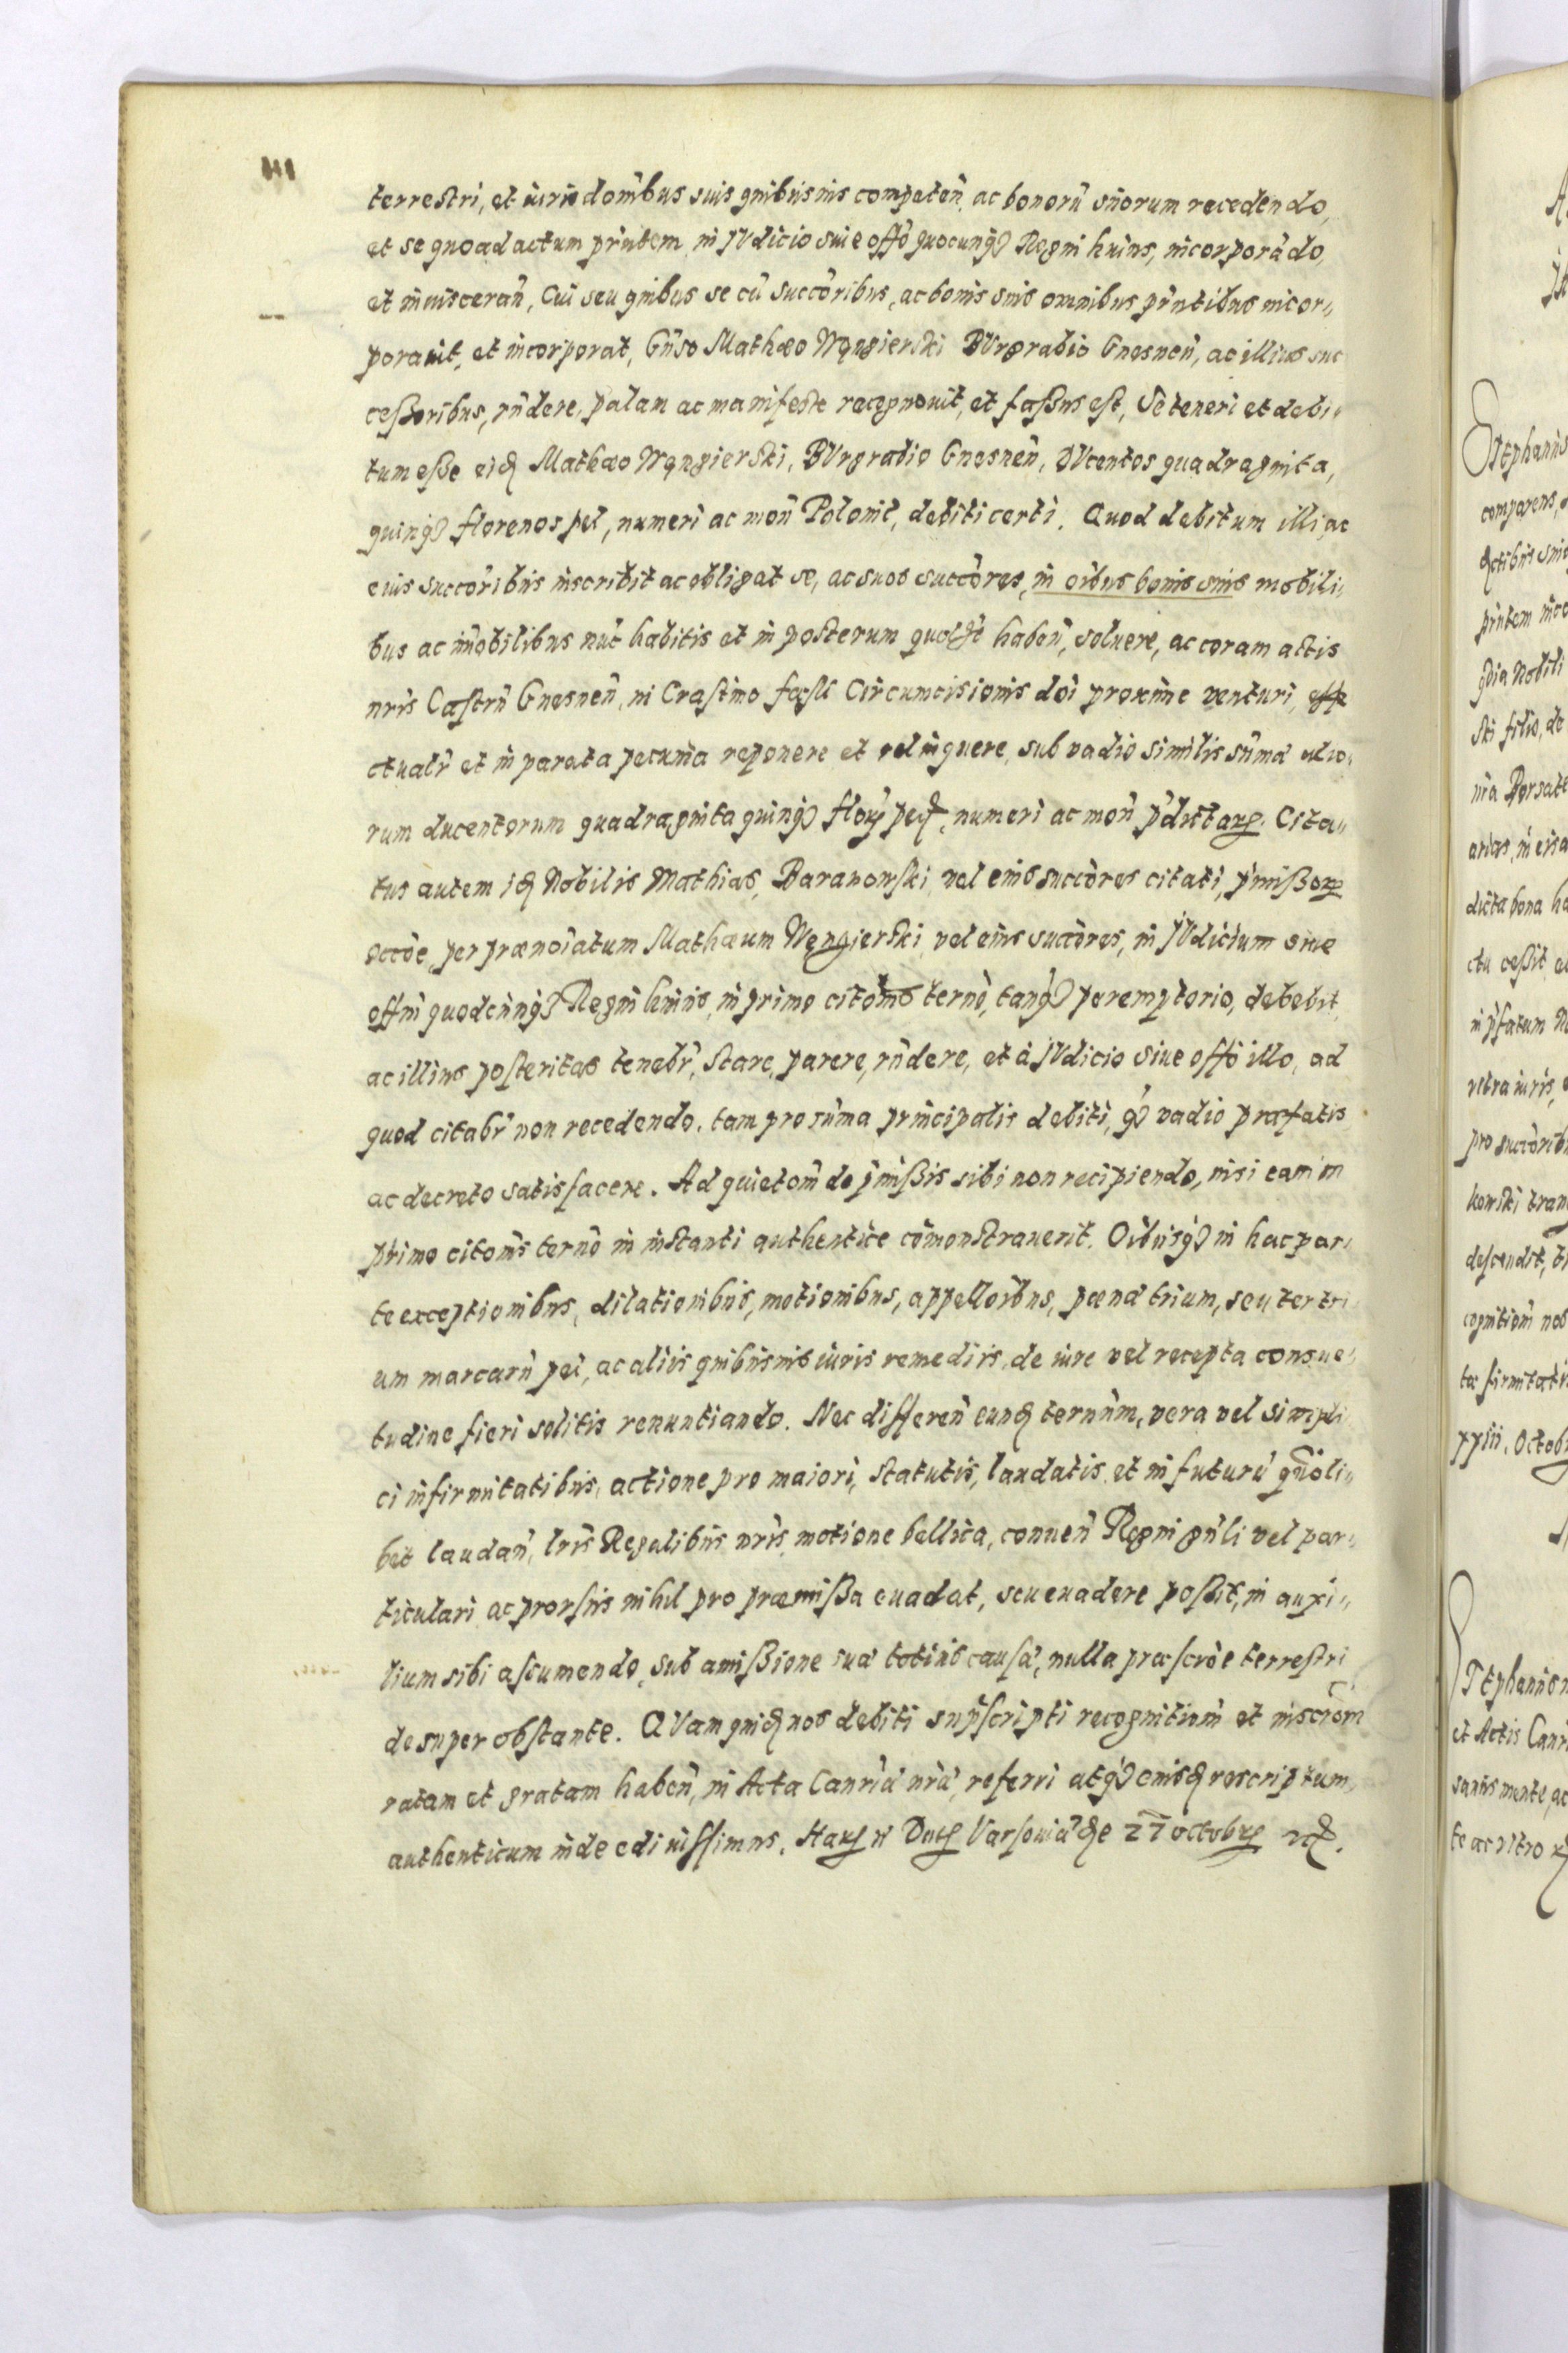 terrestri, et iurisdonibus suis quibusuis competen̄, ac bonorū suorum recedendo,
et se quoad actum pn̄tem in IVdicio siue offō quocunq3 Regni huius, incorporādo,
et inuisceran̄, Cui seu quibus se cū succōribus, ac bonis suis omnibus pn̄tibus incor„
porauit, et incorporat, Gn̄so Mathæo Węngierski BVrgrabio Gnesnen̄, ac illius suc
ceßoribus, rn̄dere, palam ac manifeste recognouit, et faßus est, Se teneri et debi„
tum eße eidē Mathæo Węngierski, BVrgrabio Gnesnen̄, dVcentos quadraginta,
quinq3 florenos pel, numeri ac mon̄ Polonic̄, debiti certi. Quod debitum illi, ac
eius succōribus inscribit ac obligat se, ac suos succōres, in oībus bonis suis mobili„
bus ac im̄obilibus nūc habitis et in posterum haben̄, soluere, ac coram actis
nris Castrn̄ Gnesnen̄, in Crastino festi Circumcisionis dōi proxime venturi, effe
ctualr̄ et in parata pecunia reponere et relinquere, sub vadio similis sūmæ alio„
rum ducentorum quadraginta quinq3 flor pec, numeri ac mon̄ p̄dictar. Cita„
tus autem idē Nobilis Mathias Baranowski, vel eius succōres citati, p̄mißor
occōe, per prænoīatum Mathæum Węngierski, vel eius succōres, in IVdicium siue
offm̄ quodcunq3 Regni huius, in primo citōnis termō, tanq3 peremptorio, debebit,
ac illius posteritas tenebr̄, stare, parere, rn̄dere, et à IVdicio siue offō illo, ad
quod citabr̄ non recedendo, tam pro sūma principalis debiti, q3 vadio præfatis
ac decreto satisfacere. Ad quietōm de p̄mißis sibi non recipiendo, nisi eam in
primo citōnis termō in instanti authentice cōmonstrauerit. Oībusq3 in hac par„
te exceptionibus, dilationibus, motionibus, appellōibus, pœna trium, seu ter tri„
um marcarū pec, ac aliis quibusuis iuris remediis, de iure vel recepta consue„
tudine fieri solitis renuntiando. Nec differen̄ eundē termm̄, vera vel simpli„
ci infirmitatibus, actione pro maiori, statutis, laudatis, et in futurū quōli„
bet laudan̄, lris Regalibus nris, motione bellica, conuen̄ Regni gn̄li vel par„
ticulari ac prorsus nihil pro præmißa euadat, seu euadere poßit, in auxi„
lium sibi assumendo, sub amißione suæ totius causæ, nulla præscrōe terrestri
desuper obstante. QVam quidē nos debiti sup̄scripti recognitiom̄ et inscrōm
ratam et gratam haben̄, in Acta Canrīæ nræ, referri atq3 eiusdē rescriptum,
authenticum inde edi iussimus. Harū Vt Dat Varsouiæ die 27 octobr